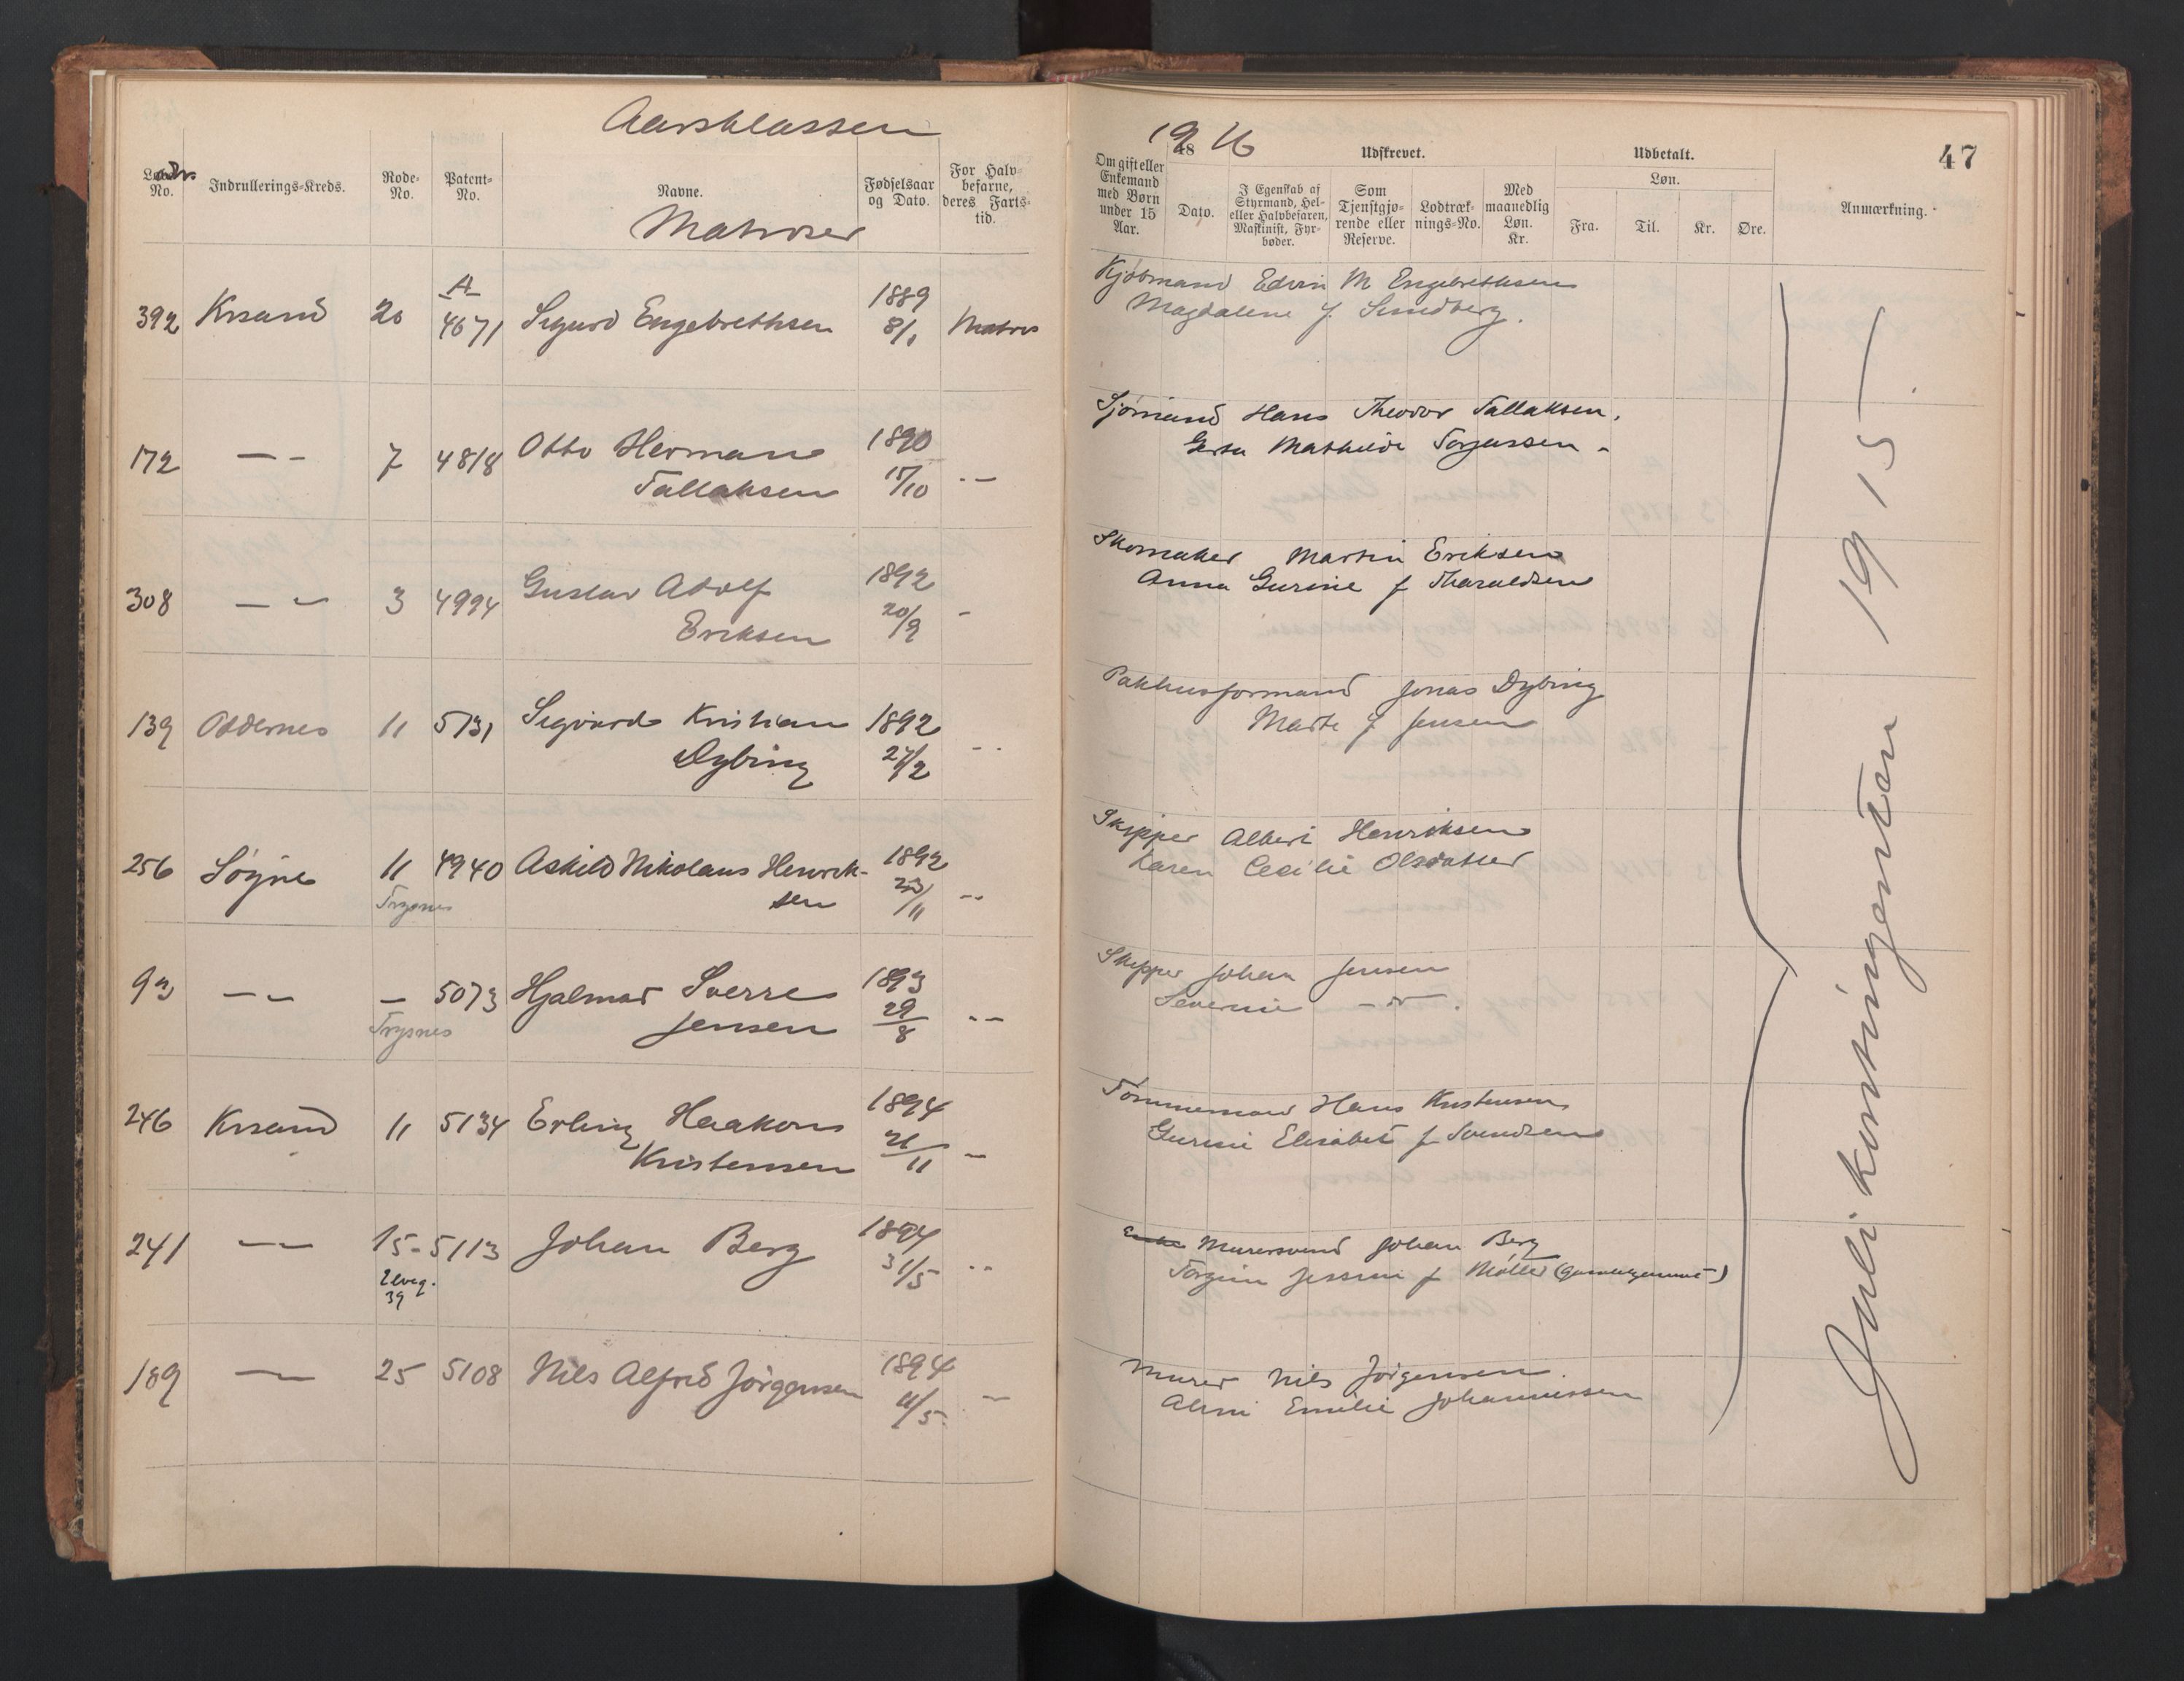 Aarsklassen
1916
47
No.
Indrullerings-Kreds.
Rode-No.
Patent-No.
Navne.
Fødselsaar og Dato.
For Halvbefarne, deres Fartstid.
Matroser
Om gift eller Enkemand med Børn under 15 Aar.
Udskrevet.
Dato.
I Egenskab af Styrmand, Hel- eller Halvbefaren, Maskinist, Fyrbøder.
Som Tjenstgjørende eller Reserve.
Lodtræknings-No.
Med maanedlig Løn. Kr.
Udbetalt.
Løn.
Fra.
Til.
Kr.
Øre.
Anmærkning.
392 Krsand 20 A 4671 Sigurd Engebrethsen 1889 8/1 Matros
Kjøbmand Edvin M Engebrethsen
Magdalene f. Sundberg.
172 — - 7 4818 Otto Herman
Tallaksen 1890 17/10 - -
Sjømand Hans Theodor Tallaksen.
Mathilde Torjussen -
308 — - 3 4994 Gustav Adolf
Eriksen 1892 20/9 -
Skomaker Martin Eriksen
Anna Gurine f Tharaldsen
139 Oddernes 11 5131 Sigvard Kristian
Dybing 1892 27/2 - -
Pakhusformand Jonas Dybing
Marte f Jensen
256 Søgne 11 4940 Askild Nikolaus Henrik-
sen 1892 23/11 - -
Trysnes
Skipper Albert Henriksen
Karen Cecilie Olsdatter
93 — - - 5073 Hjalmar Sverre
Jensen 1893 29/8 - -
Trysnes
Skipper Johan Jensen
Severine - " - .
246 Krsand 11 5134 Erling Haakon
Kristensen 1894 21/11 -
Tømmermand Hans Kristensen
Gurine Elisabet f Svendsen
241 — - 15 - 5113 Johan Berg 1894 31/5 - -
Elveg. 39
Murersvend Johan Berg
Jessine f Møller
189 — - 25 5108 Nils Alfred Jørgensen 1894 11/5 -
Murer Nils Jørgensen
Emilie Johannessen
Juli kontingenten 1915 —